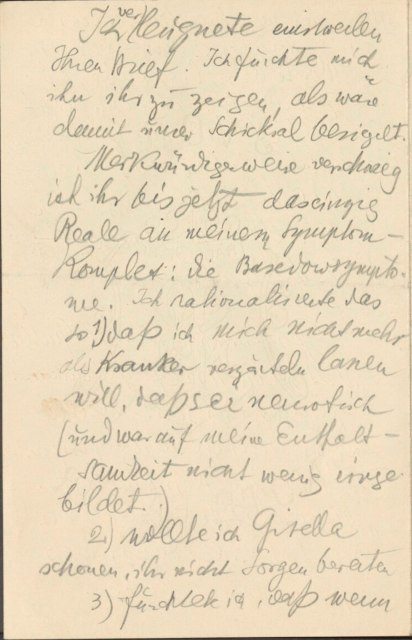 Ich (ver)leugnete einstweilen
Ihren Brief. Ich fürchte mich
ihn ihr zu zeigen, als wäre
damit unser Schicksal besigelt.
Merkwürdigerweise verschwieg
ich ihr bis jetzt das einzig
Reale an meinem Symptom-
Komplex: die Basedowsympto-
me. Ich rationalisierte das
so 1) daß ich mich nicht mehr
als Kranker verzärteln lassen
will, daß er neurotisch
(und war auf meine Enthalt-
samkeit nicht wenig einge-
bildet.)
2) wollte ich Gisella
schonen, ihr nicht Sorgen bereiten
3) fürchtete ich, daß wenn